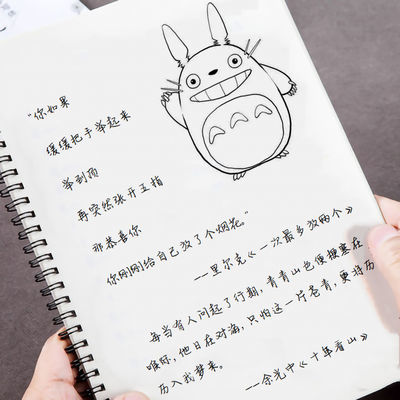 “你如果
缓缓把手举起来
举到顶
再突然张开五指
那恭喜你
你刚刚给自己放了个烟花。”
--里尔克《一次最多放两个》
每当有人问起了行期，青青山色便梗塞在
喉际，他日在对海，只怕这一片苍青，更将历
历入我梦来。
--余光中《十年看山》